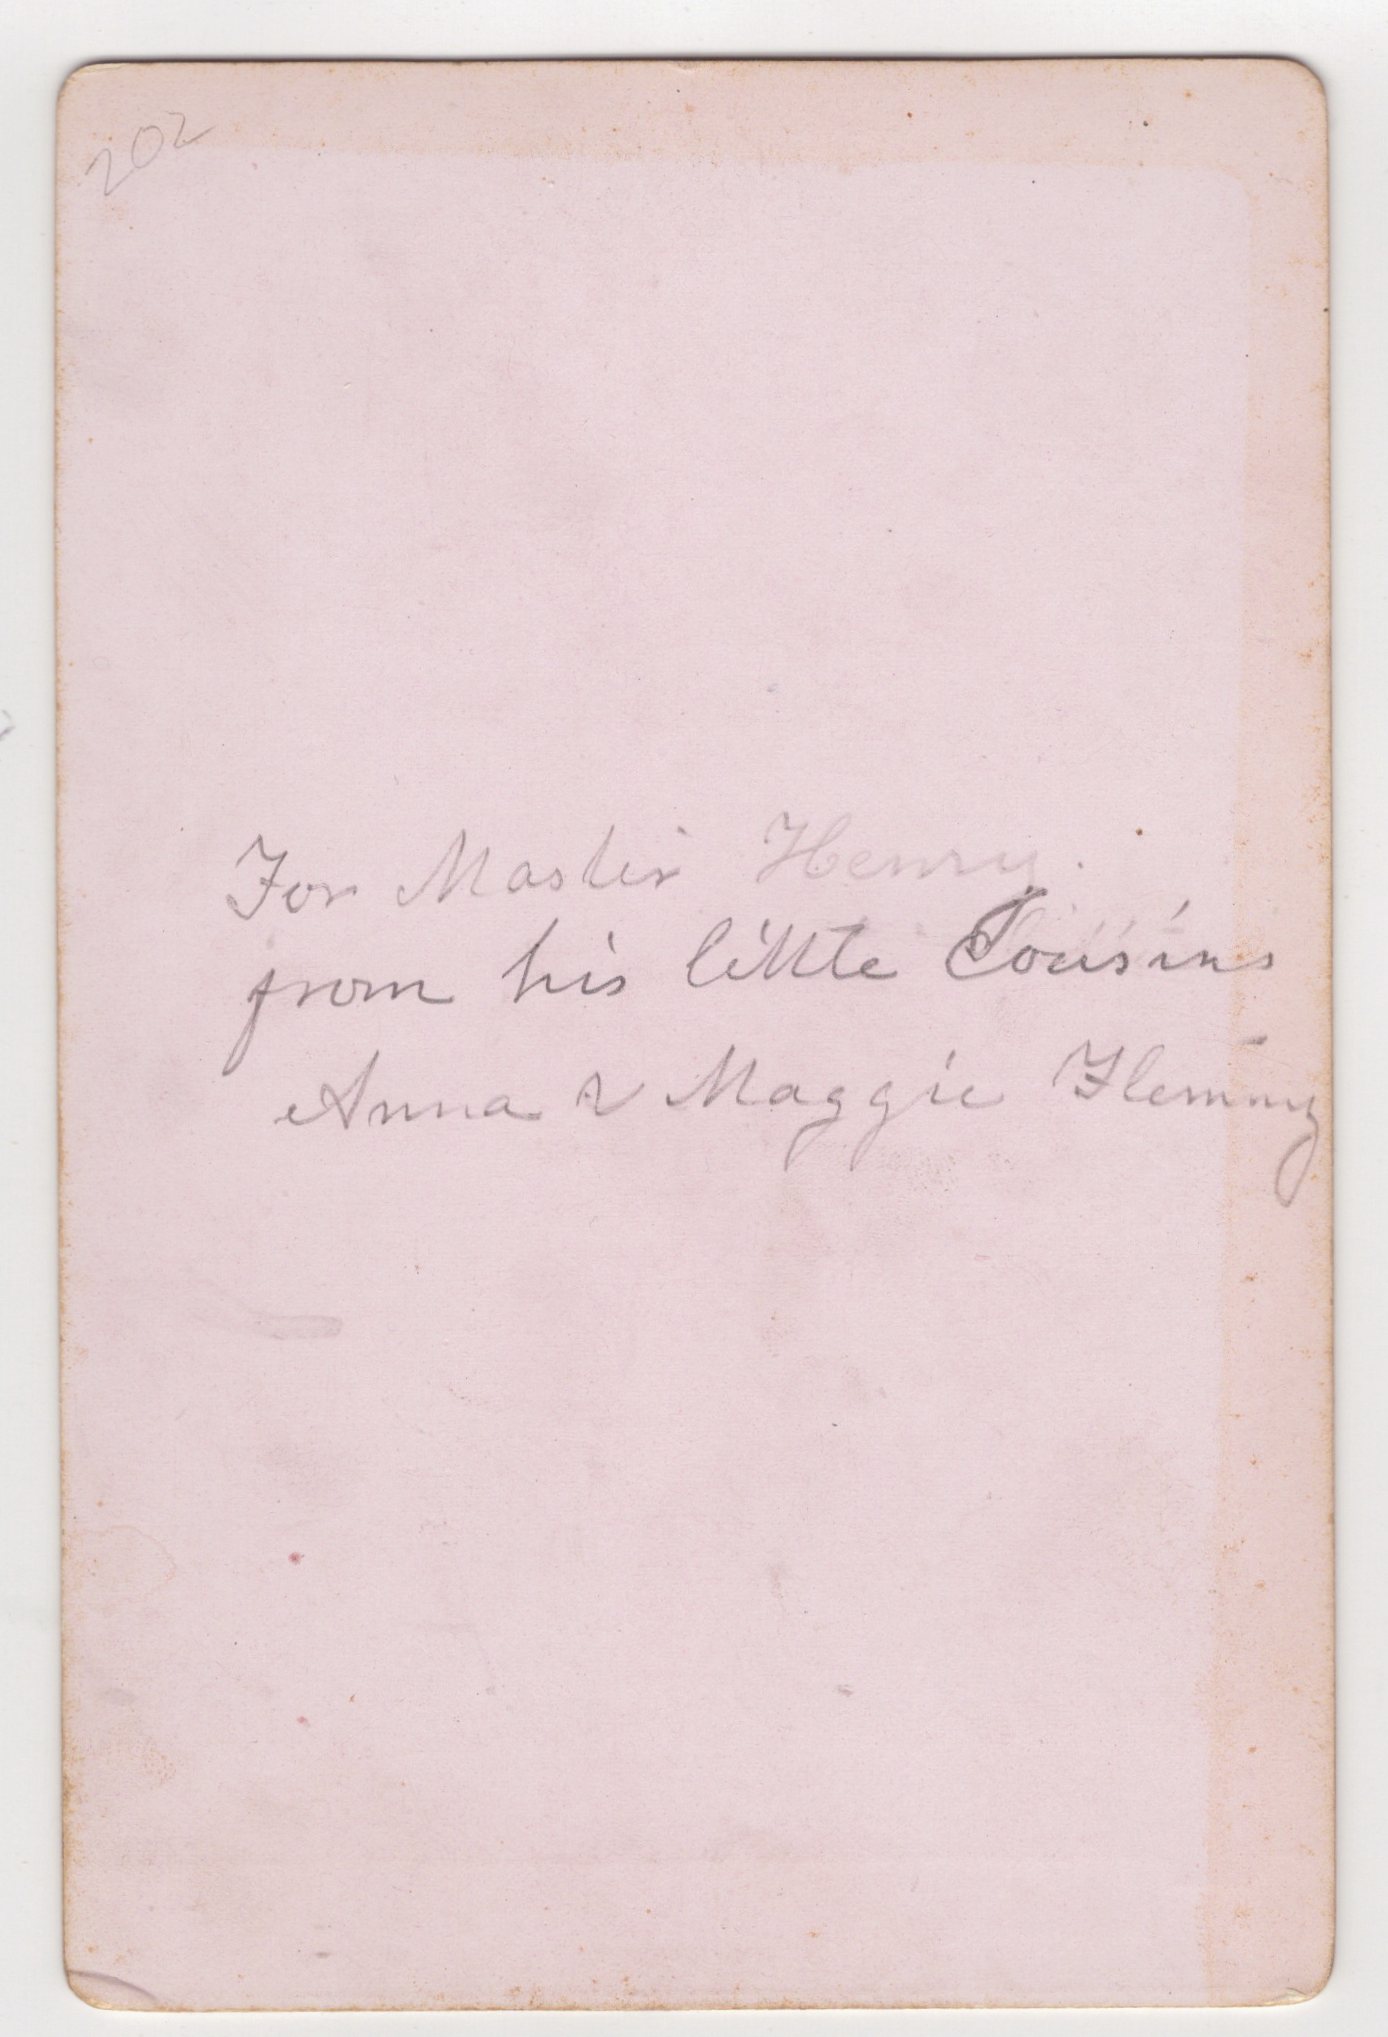 202
For Master Henry.
from his little Cousins
Anna & Maggie Fleming